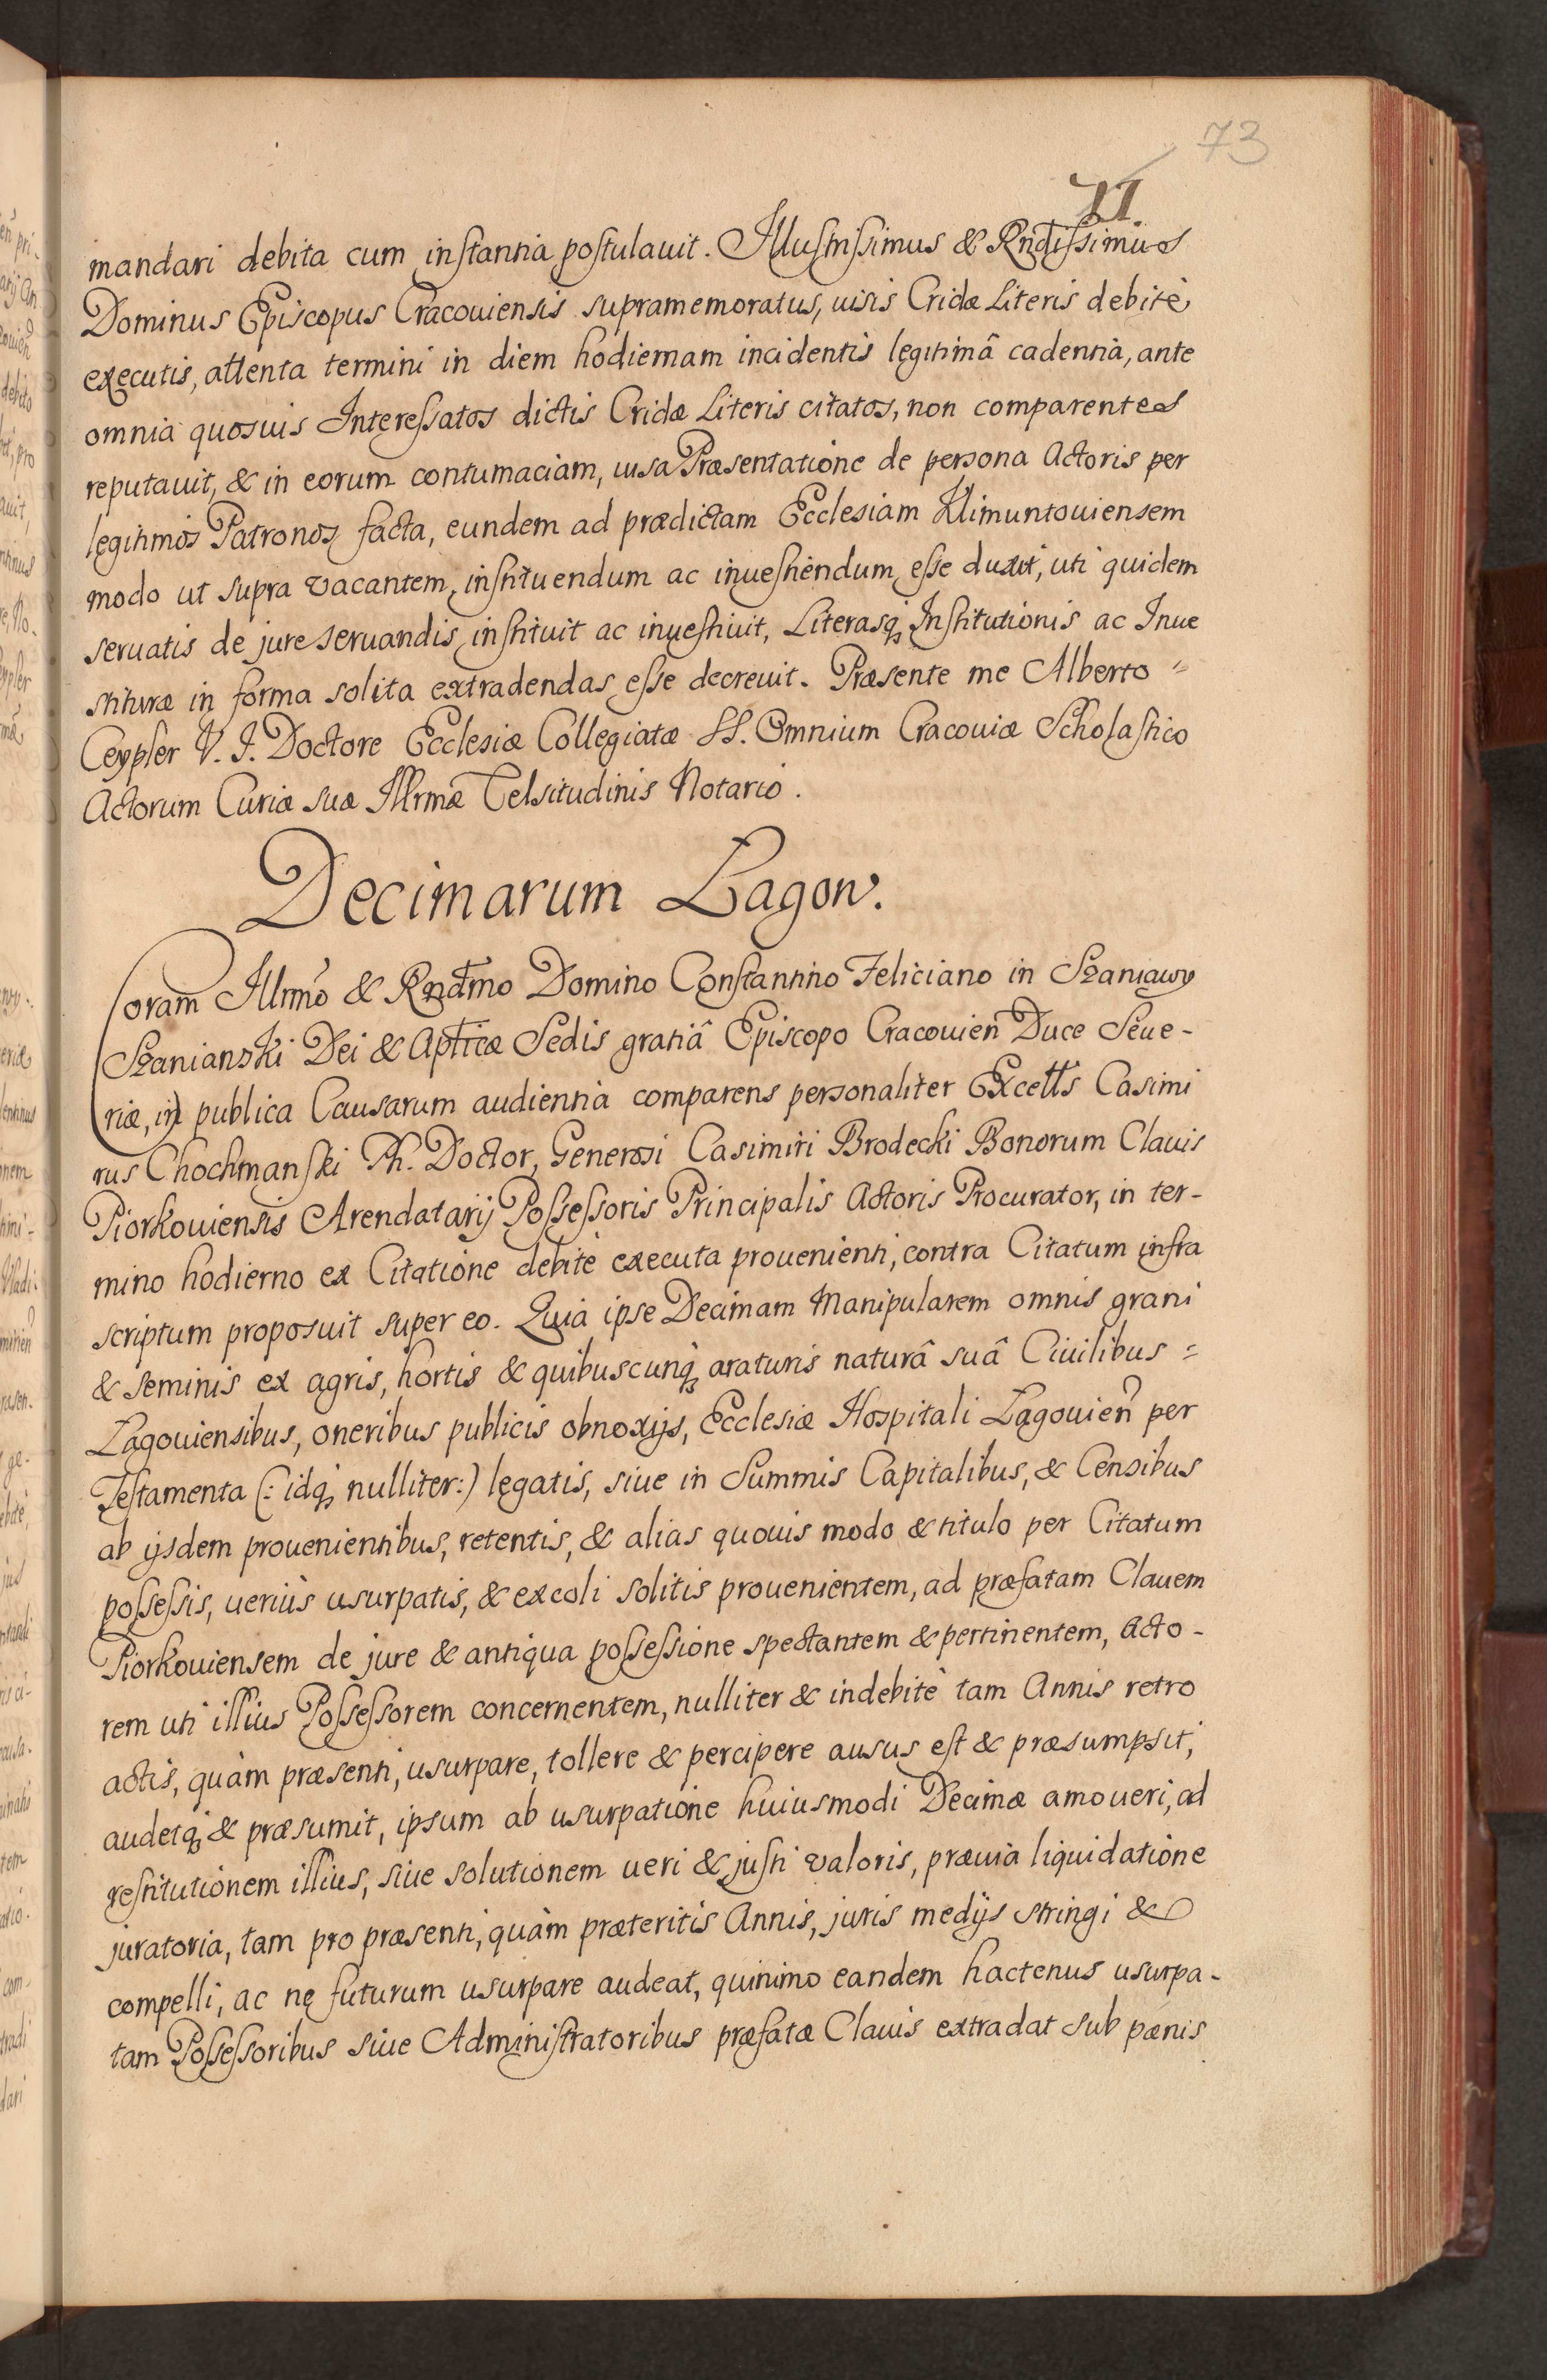 73
71.
mandari debita cum instantia postulauit. Illustrissimus & Rndissimus
Dominus Episcopus Cracouiensis supramemoratus, uisis Cridæ Literis debitè
executis, attenta termini in diem hodiernam incidentis legitimâ cadentia, ante
omnia quosuis Interessatos dictis Cridæ Literis citatos, non comparentes
reputauit, & in eorum contumaciam, uisa Præsentatione de persona Actoris per
legitimos Patronos facta, eundem ad prædictam Ecclesiam Klimuntouiensem
modo ut supra vacantem, instituendum ac inuestiendum esse duxit, uti quidem
seruatis de jure seruandis instituit ac inuestiuit, Literasq; Institutionis ac Inue
stituræ in forma solita extradendas esse decreuit. Præsente me Alberto =
Ceypler V. J. Doctore Ecclesiæ Collegiatæ SS. Omnium Cracouiæ Scholastico
Actorum Curiæ suæ Illrmæ Celsitudinis Notario.
Decimarum Lagow.
Coram Illrmo & Rndmo Domino Constantino Feliciano in Szaniawy
Szanianski Dei & Apticæ Sedis gratiâ Episcopo Cracouien Duce Seue-
riæ, in publica Causarum audientia comparens personaliter Excells Casimi
rus Chochmanski Ph. Doctor, Generosi Casimiri Brodecki Bonorum Clauis
Piorkouiensis Arendatarij Possessoris Principalis Actoris Procurator, in ter-
mino hodierno ex Citatione debitè executa prouenienti, contra Citatum infra
scriptum proposuit super eo. Quia ipse Decimam Manipularem omnis grani
& seminis ex agris, hortis & quibuscunq; araturis naturâ suâ Ciuilibus =
Lagouiensibus, oneribus publicis obnoxijs, Ecclesiæ Hospitali Lagouien per
Testamenta (: idq; nulliter :) legatis, siue in Summis Capitalibus, & Censibus
ab ijsdem prouenientibus, retentis, & alias quouis modo & titulo per Citatum
possessis, ueriùs usurpatis, & excoli solitis prouenientem, ad præfatam Clauem
Piorkouiensem de jure & antiqua possessione spectantem & pertinentem, Acto-
rem uti illius Possessorem concernentem, nulliter & indebitè tam Annis retro
actis, quàm præsenti, usurpare, tollere & percipere ausus est & præsumpsit,
audetq; & præsumit, ipsum ab usurpatione huiusmodi Decimæ amoueri, ad
restitutionem illius, siue solutionem ueri & justi valoris, præuia liquidatione
juratoria, tam pro præsenti, quàm præteritis Annis, juris medijs stringi &
compelli, ac ne futurum usurpare audeat, quinimo eandem hactenus usurpa-
tam Possessoribus siue Administratoribus præfatæ Clauis extradat sub pænis